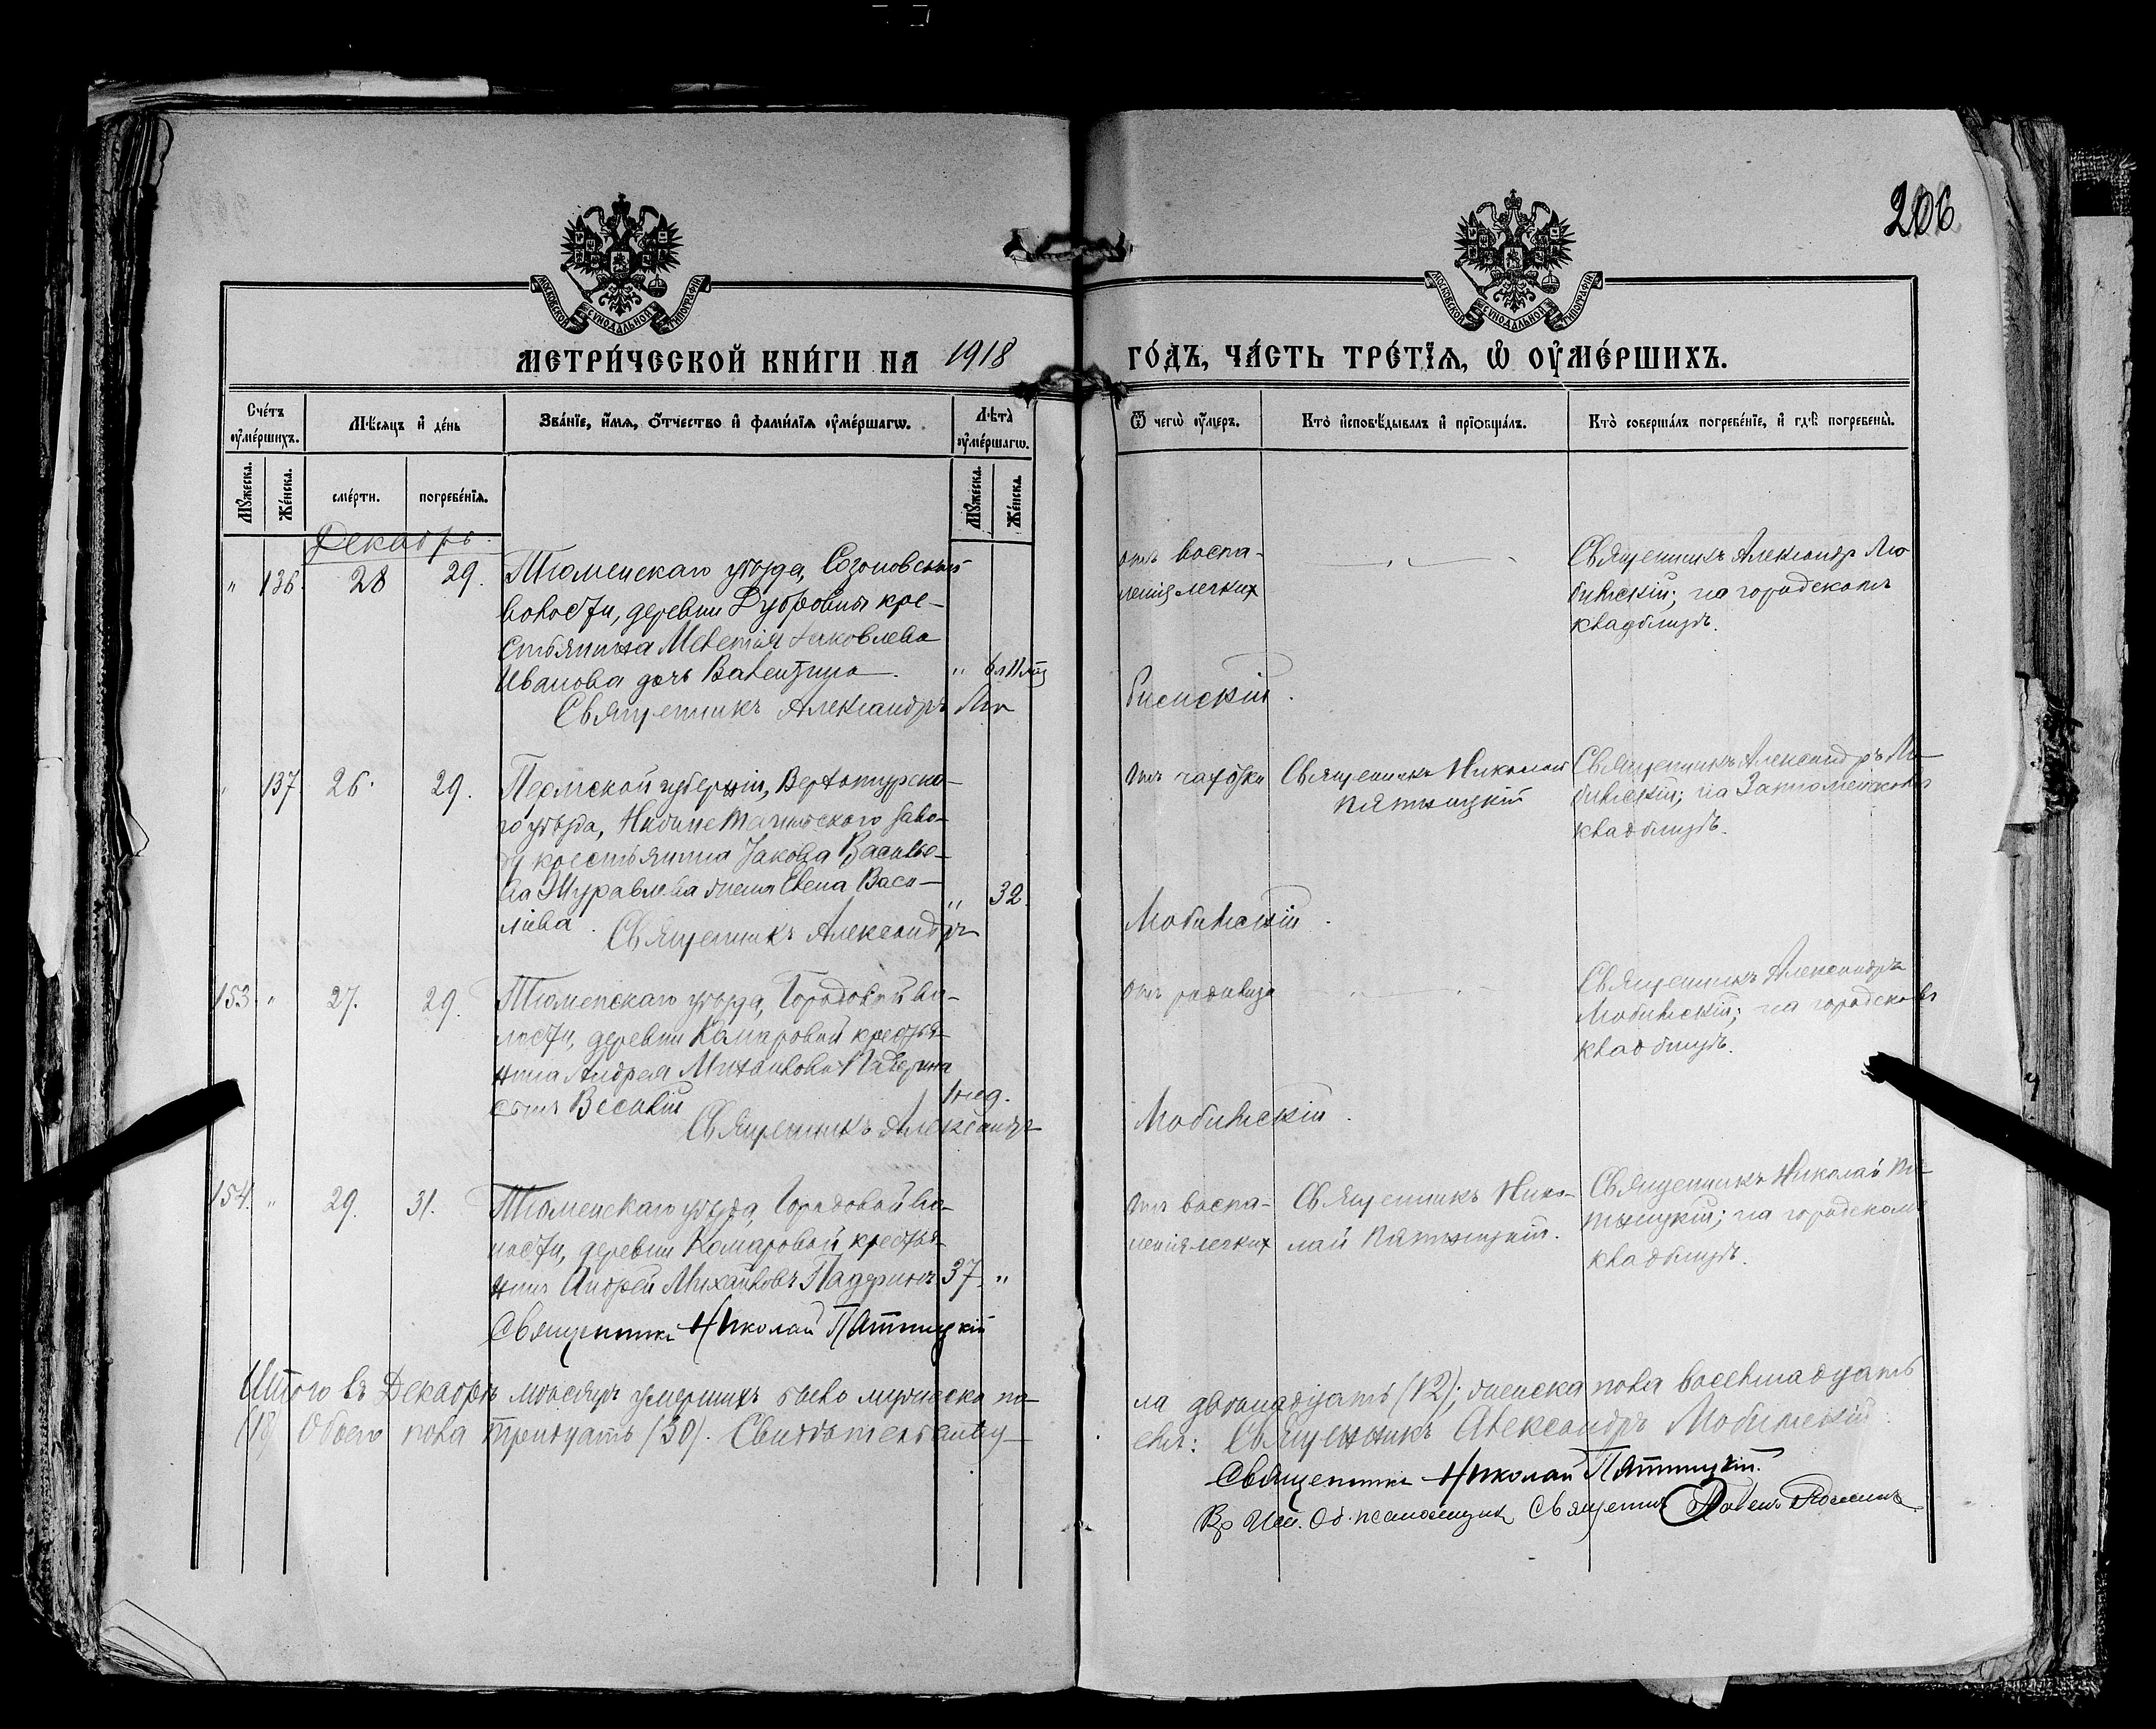 206
МОСКОВСКОЙ СѴНОДАЛЬНОЙ ТИПОГРАФІИ
МОСКОВСКОЙ СѴНОДАЛЬНОЙ ТИПОГРАФІИ
МЕТРИ́ЧЕСКОЙ КНИ́ГИ НА 1918 ГО́ДЪ, ЧА́СТЬ ТРЕ́ТЇѦ, Ѡ҆ ОУ҆МЕ́РШИХЪ.
Сче́тъ оу҆ме́ршихъ.
Мѣ́сѧцъ и҆ де́нь
Зва́нїе, и҆́мѧ, ѻ҆́тчество и҆ фами́лїѧ оу҆ме́ршагѡ.
Лѣ́та оу҆ме́ршагѡ.
Ѿ чегѡ̀ оу҆́меръ.
Кто̀ и҆сповѣ́дывалъ и҆ прїѻбща́лъ.
Кто̀ соверша́лъ погребе́нїе, и҆ гдѣ̀ погребены̀.
Мꙋ́жеска.
Же́нска.
сме́рти.
погребе́нїѧ.
Мꙋ́жеска.
Же́нска.
Декабрь.
" 136. 28 29. Тюменскаго уѣзда, Созоновской
волости, деревни Дубровны кре-
стьянина Мелетія Іаковлева
Иванова дочь Валентина. "
Священникъ Александръ Лю
отъ воспа-
ленія легкихъ
Священникъ Александръ Лю
бимскій; на городскомъ
кладбищѣ.
бимскій.
" 137 26. 29. Пермской губерніи, Верхотурска-
го уѣзда, Нижне Тагильского заво-
да крестьянина Іакова Василье-
ва Журавлева жена Елена Васи- " 32.
льева. Священникъ Александръ
Отъ чахотки
Священникъ Николай
Пятницкій
Священникъ Александръ Лю-
бимскій; на Затюменскомъ
кладбищѣ.
Любимскій.
153 " 27. 29. Тюменскаго уѣзда, Городовой во-
лости, деревни Комаровой крестья-
нина Андрея Михайлова Падерина
сынъ Василій 1 нед.
Священникъ Александръ
Отъ родимца
Священникъ Александръ
Любимскій; на городскомъ
кладбищѣ.
Любимскій.
154. " 29. 31. Тюменскаго уѣзда, Городовой во-
лости, деревни Комаровой крестья-
нинъ Андрей Михайловъ Падеринъ 37. "
Священникъ Николай Пятницкій
Отъ воспа-
ленія легкихъ
Священникъ Нико-
лай Пятницкій.
Священникъ Николай Пя-
тницкій; на городскомъ
кладбищѣ.
Итого въ Декабрѣ мѣсяцѣ умершихъ было мужеска по-
ла двѣнадцать (12); женска пола восемнадцать
(18) Обоего пола тридцать (30). Свидѣтельству-
емъ: Священникъ Александръ Любимскій
Священникъ Николай Пятницкій.
Вр. Исп. Об. псаломщика Священникъ Павелъ